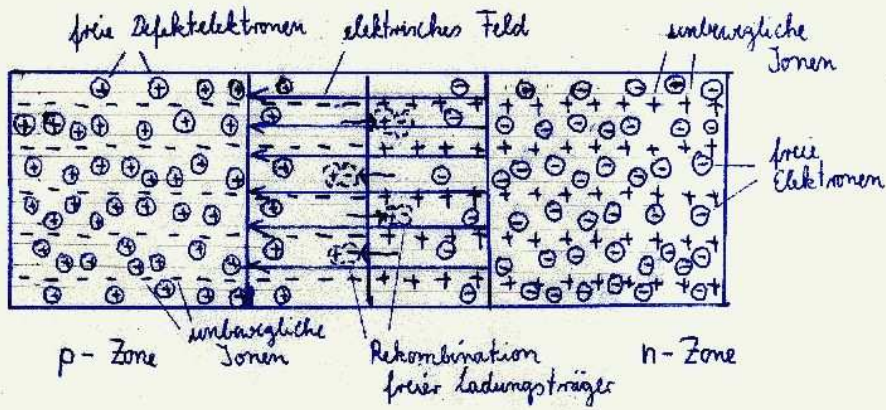 freie Defektelektronen
elektrisches Feld
unbewegliche
Ionen
freie
Elektronen
p-Zone
unbewegliche
Ionen
Rekombination
freier Ladungsträger
n-Zone